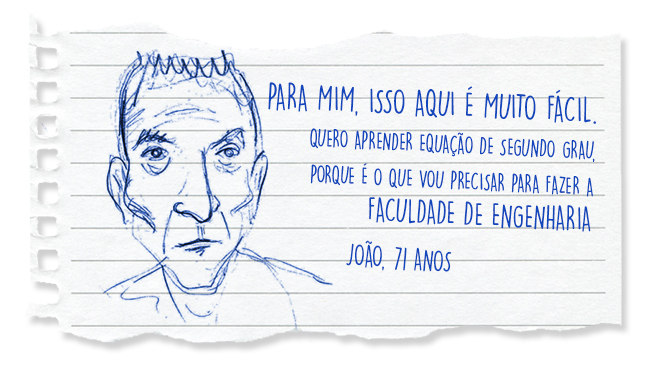 PARA MIM, ISSO AQUI É MUITO FÁCIL.
QUERO APRENDER EQUAÇÃO DE SEGUNDO GRAU,
PORQUE É O QUE VOU PRECISAR PARA FAZER A
FACULDADE DE ENGENHARIA
JOÃO, 71 ANOS